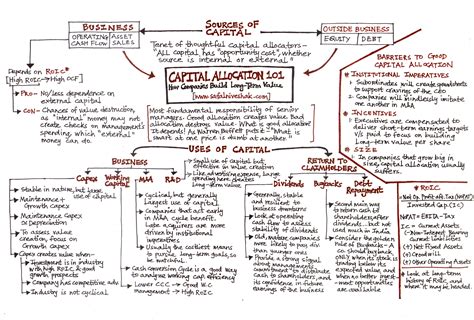 SOURCES OF
CAPITAL
BUSINESS
OPERATING
CASH FLOW
ASSET
SALES
OUTSIDE BUSINESS
EQUITY
DEBT
Tenet of thoughtful capital allocators-
"All capital has "opportunity cost", whether
source is internal or external"
Depends on ROIC*
High ROIC → High OCF
PRO- No/less dependence on
external capital
CON- Chances of value destruction,
as "internal" money may not
create checks on management's
spending, which "external"
money can do
CAPITAL ALLOCATION 101
How Companies Build Long-Term Value
www.safalniveshak.com
Most fundamental responsibility of senior
managers. Good allocation creates value. Bad
allocation destroys value. What is good allocation?
It depends! As Warren Buffett puts it - "What is
smart at one price is dumb at another."
BARRIERS TO GOOD
CAPITAL ALLOCATION
INSTITUTIONAL IMPERATIVES
Subordinates will create spreadsheets
to support cravings of the boss
Companies will mindlessly imitate
one another in M&A
INCENTIVES
Executives are compensated to
deliver short-term earnings targets
V/s paid to focus on building
long-term value per share
SIZE
In companies that grow big in
size, capital allocation usually
suffers.
USES OF CAPITAL
BUSINESS
Capex
Working
Capital
M&A
R&D
Small use of capital but,
key to value creation
Like capex, some
spending here has
long-term value.
RETURN TO
CLAIMHOLDERS
Dividends
Buybacks
Debt
Repayment
Stable in nature, but large
use of capital
Maintenance +
Growth Capex
Maintenance Capex
= Depreciation
To assess value
creation, focus on
Growth Capex
Capex creates value when-
Investment is in industry
with high ROIC & good
growth prospects
Company has competitive adv.
Industry is not cyclical
Cyclical, but generally
largest use of capital
Companies that act early
in M&A cycle benefit.
Late acquirers are more
driven by institutional
imperatives
Usually the costliest means
to purple, long-term goals,
so be watchful.
Cash Conversion Cycle is a good way
to analyse working cap efficiency
Lower CCC → Good W.C
management → High ROIC
Generally, stable
and resilient
Look at operating
cash flow to assess
stability of
dividends
Old, mature companies
more likely to pay div
than younger ones
Provide a strong
signal about
management's
commitment to
shareholders, and
its confidence in future
earnings of the business
Second main way
to return cash to
shareholders after
dividends... but not
so much in India
Consider the golden
rule of Buybacks - A
co should buyback,
only when its stock is
trading below its
expected value, and
when no better invest-
ment opportunities
are available
*ROIC
= Net Op. Profit Aft. Tax (NOPAT)
Invested Cap (IC)
NOPAT = EBITA - Tax
IC = Current Assets
(-) Non-Interest Bearing
current liabilities
(+) Net Fixed Assets
(+) Goodwill
(+) Other Operating Assets
Look at long-term
history of ROIC, and
their trend